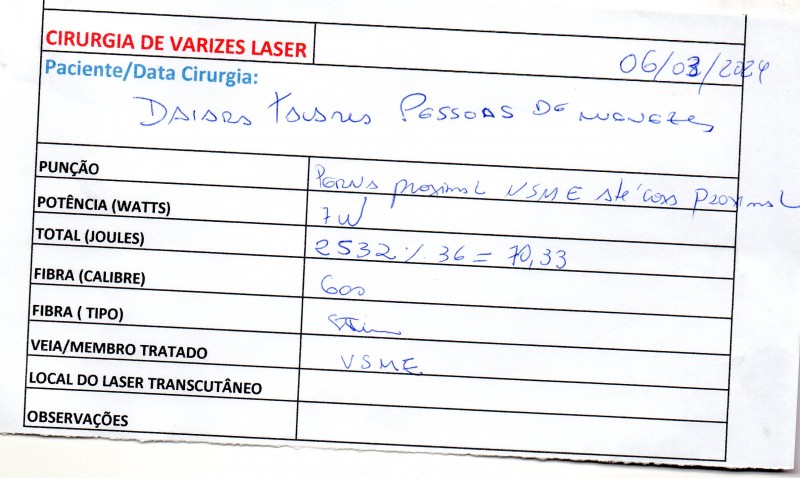 CIRURGIA DE VARIZES LASER
06/03/2024
Paciente/Data Cirurgia:
PESSOAS DE MENEZES
PUNÇÃO PERNA proximal VSME até coxa proximal
POTÊNCIA (WATTS) 7W
TOTAL (JOULES) 2532 ./. 36 = 70,33
FIBRA (CALIBRE) 600
FIBRA ( TIPO)
VEIA/MEMBRO TRATADO VSME
LOCAL DO LASER TRANSCUTÂNEO
OBSERVAÇÕES